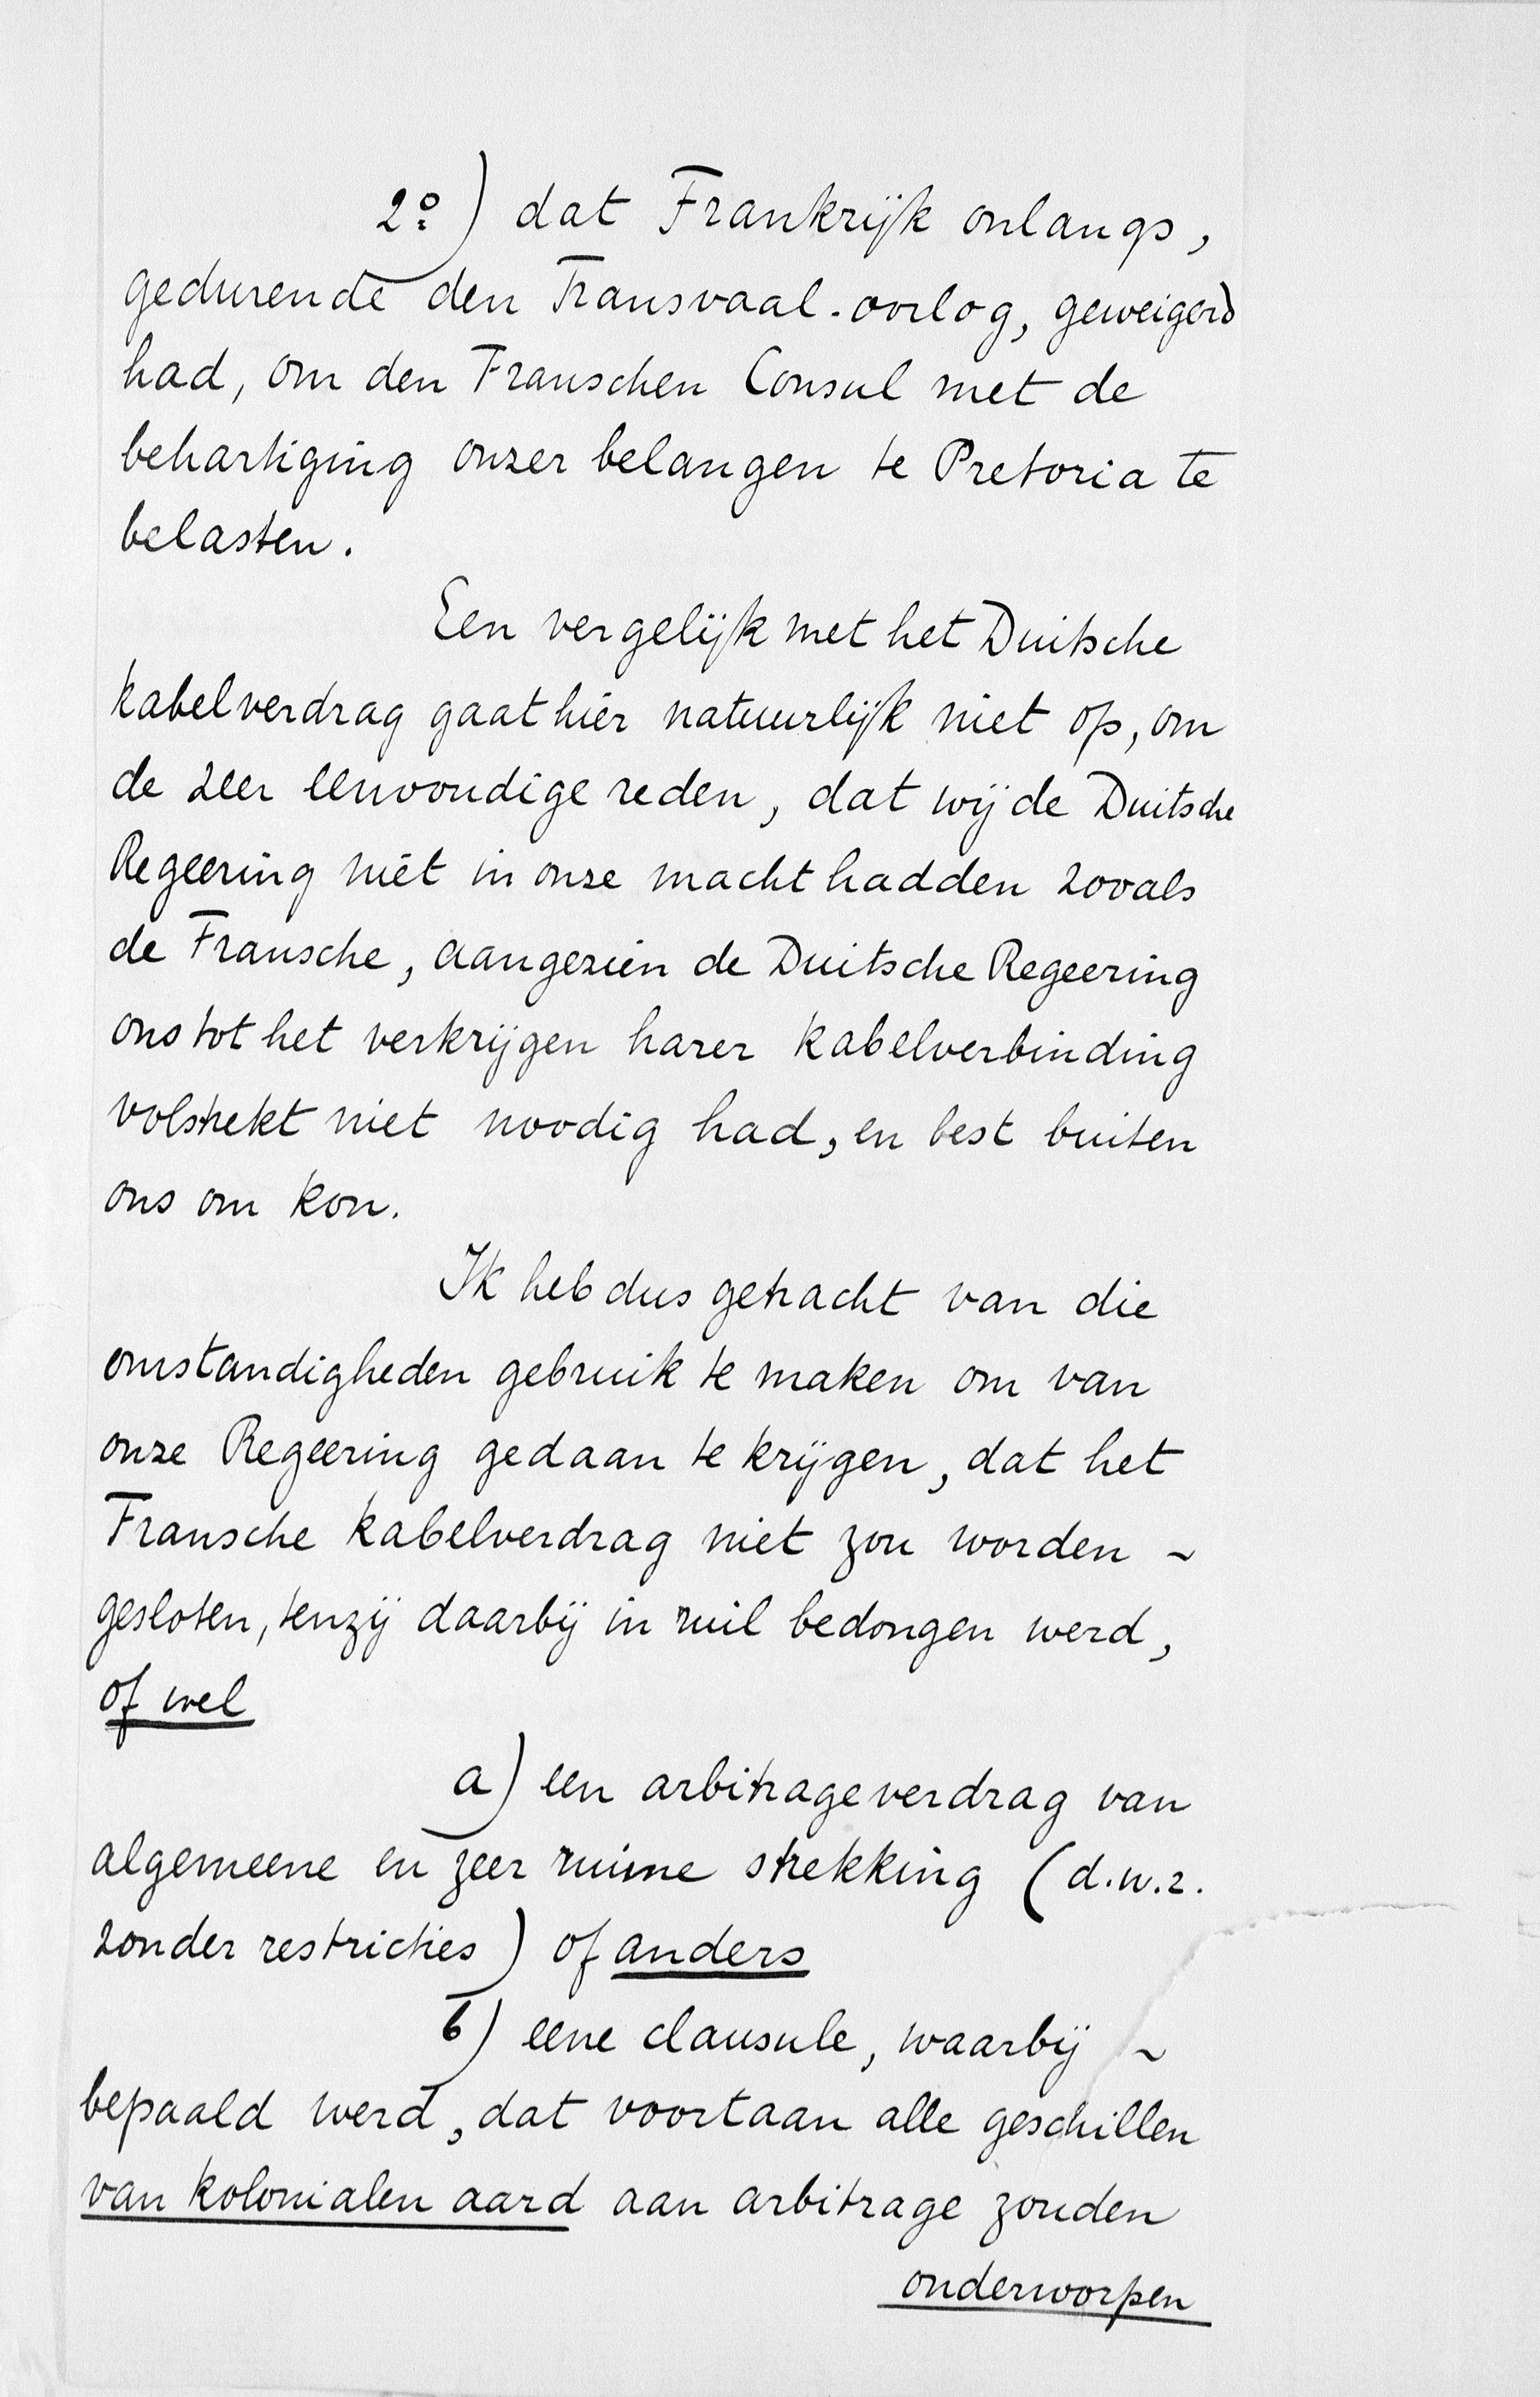 2º) dat Frankrijk onlangs,
gedurende den Transvaal-oorlog, geweigerd
had, om den Franschen Consul met de
behartiging onzer belangen te Pretoria te
belasten.
Een vergelijk met het Duitsche
kabelverdrag gaat hier natuurlijk niet op, om
de zeer eenvoudige reden, dat wij de Duitsche
Regeering niet in onze macht hadden zooals
de Fransche, aangezien de Duitsche Regeering
ons tot het verkrijgen harer kabelverbinding
volstrekt niet noodig had, en best buiten
ons om kon.
Ik heb dus getracht van die
omstandigheden gebruik te maken om van
onze Regeering gedaan te krijgen, dat het
Fransche kabelverdrag niet zou worden ~
gesloten, tenzij daarbij in ruil bedongen werd,
of wel
a) een arbitrageverdrag van
algemeene en zeer ruime strekking (d.w.z.
zonder restricties) of anders
b) eene clausule, waarbij ~
bepaald werd, dat voortaan alle geschillen
van kolonialen aard aan arbitrage zouden
onderworpen